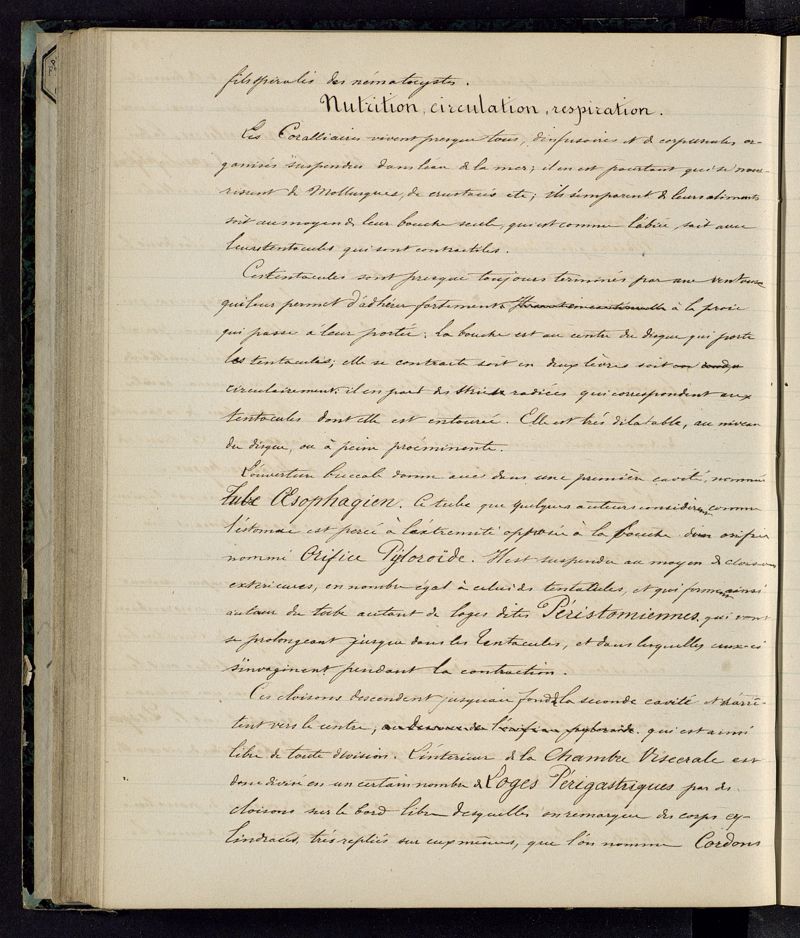 filspiralis des nématocystes.
Nutrition, circulation, respiration.
Les Coralliaires vivent presque tous, d'infusoires et de corpuscules or-
ganisés suspendus dans l'eau de la mer; il en est pourtant qui se nour-
rissent de Mollusques, de crustacés etc; ils s'emparent de leurs aliments
soit au moyen de leur bouche seule, qui est comme labiée, soit avec
leurs tentacules qui sont contractiles.
Ces tentacules sont presque toujours terminés par une ventouse
qui leur permet d'adhérer fortement à la proie
qui passe à leur portée. La bouche est au centre du disque qui porte
les tentacules; elle se contracte soit en deux lèvres soit en rond
circulairement; il en part des stries radiées qui correspondent aux
tentacules dont elle est entourée. Elle est très dilatable, au niveau
du disque, ou à peine proéminente.
L'ouverture buccale donne accès dans une première cavité, nommée
Tube Œsophagien. Ce tube que quelques auteurs considèrent comme
l'éstomac est percé à l'extremité opposée à la bouche d'un orifice
nommé Orifice Pÿloroïde. Il est suspendu au moyen de cloisons
extérieures, en nombre égal à celui des tentacules, et qui forment ainsi
autour du tube autant de loges dites Péristomiennes, qui vont
se prolongeant jusque dans les Tentacules, et dans lesquelles ceux-ci
s'invaginent pendant la contraction.
Ces cloisons descendent jusqu'au fond de la seconde cavité et s'arrê-
tent vers le centre, au dessous de l'orifice pyloroïde. qui est ainsi
libre de toute division. L'intérieur de la Chambre Viscerale est
donc divisé en un certain nombre de Loges Périgastriques par des
cloisons sur le bord libre desquelles on remarque des corps cy-
lindracés, très repliés sur eux mêmes, que l'on nomme Cordons